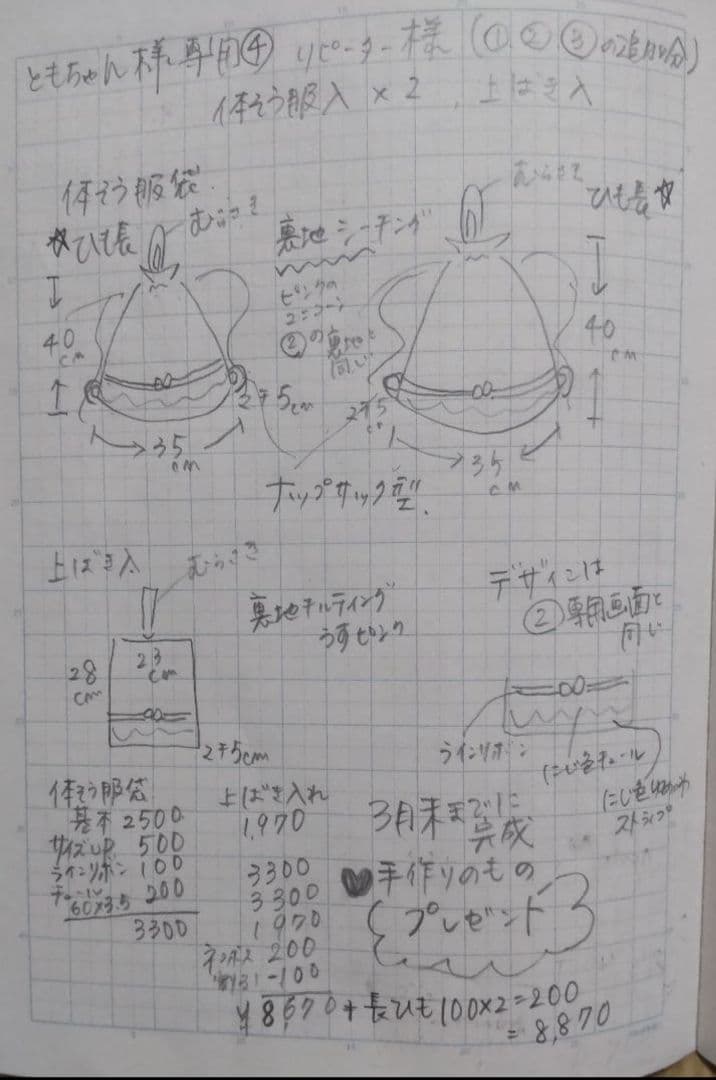 ともちゃん様専用④ リピーター様 (①②③の追加分)
体そう服入 × 2 , 上ばき入
体そう服袋
☆ひも長
むらさき
40
cm
35
cm
マチ5cm
裏地シーチング
ピンクの
ユニコーン
②の裏地と
同じ
むらさき
ひも長☆
40
cm
マチ5
35
cm
ナップサック型.
上ばき入
むらさき
28
cm
23
cm
マチ5cm
裏地キルティング
うすピンク
デザインは
②専用画面と
同じ
ラインリボン
にじ色チュール
にじ色
ストライプ
体そう服袋
基本 2500
サイズUP 500
ラインリボン 100
チュール 200
60×3.5
3300
上ばき入れ
1,970
3300
3300
1970
200
-100
¥8,670 + 長ひも100×2=200
= 8,870
3月末までに
完成
♥手作りのもの
プレゼント